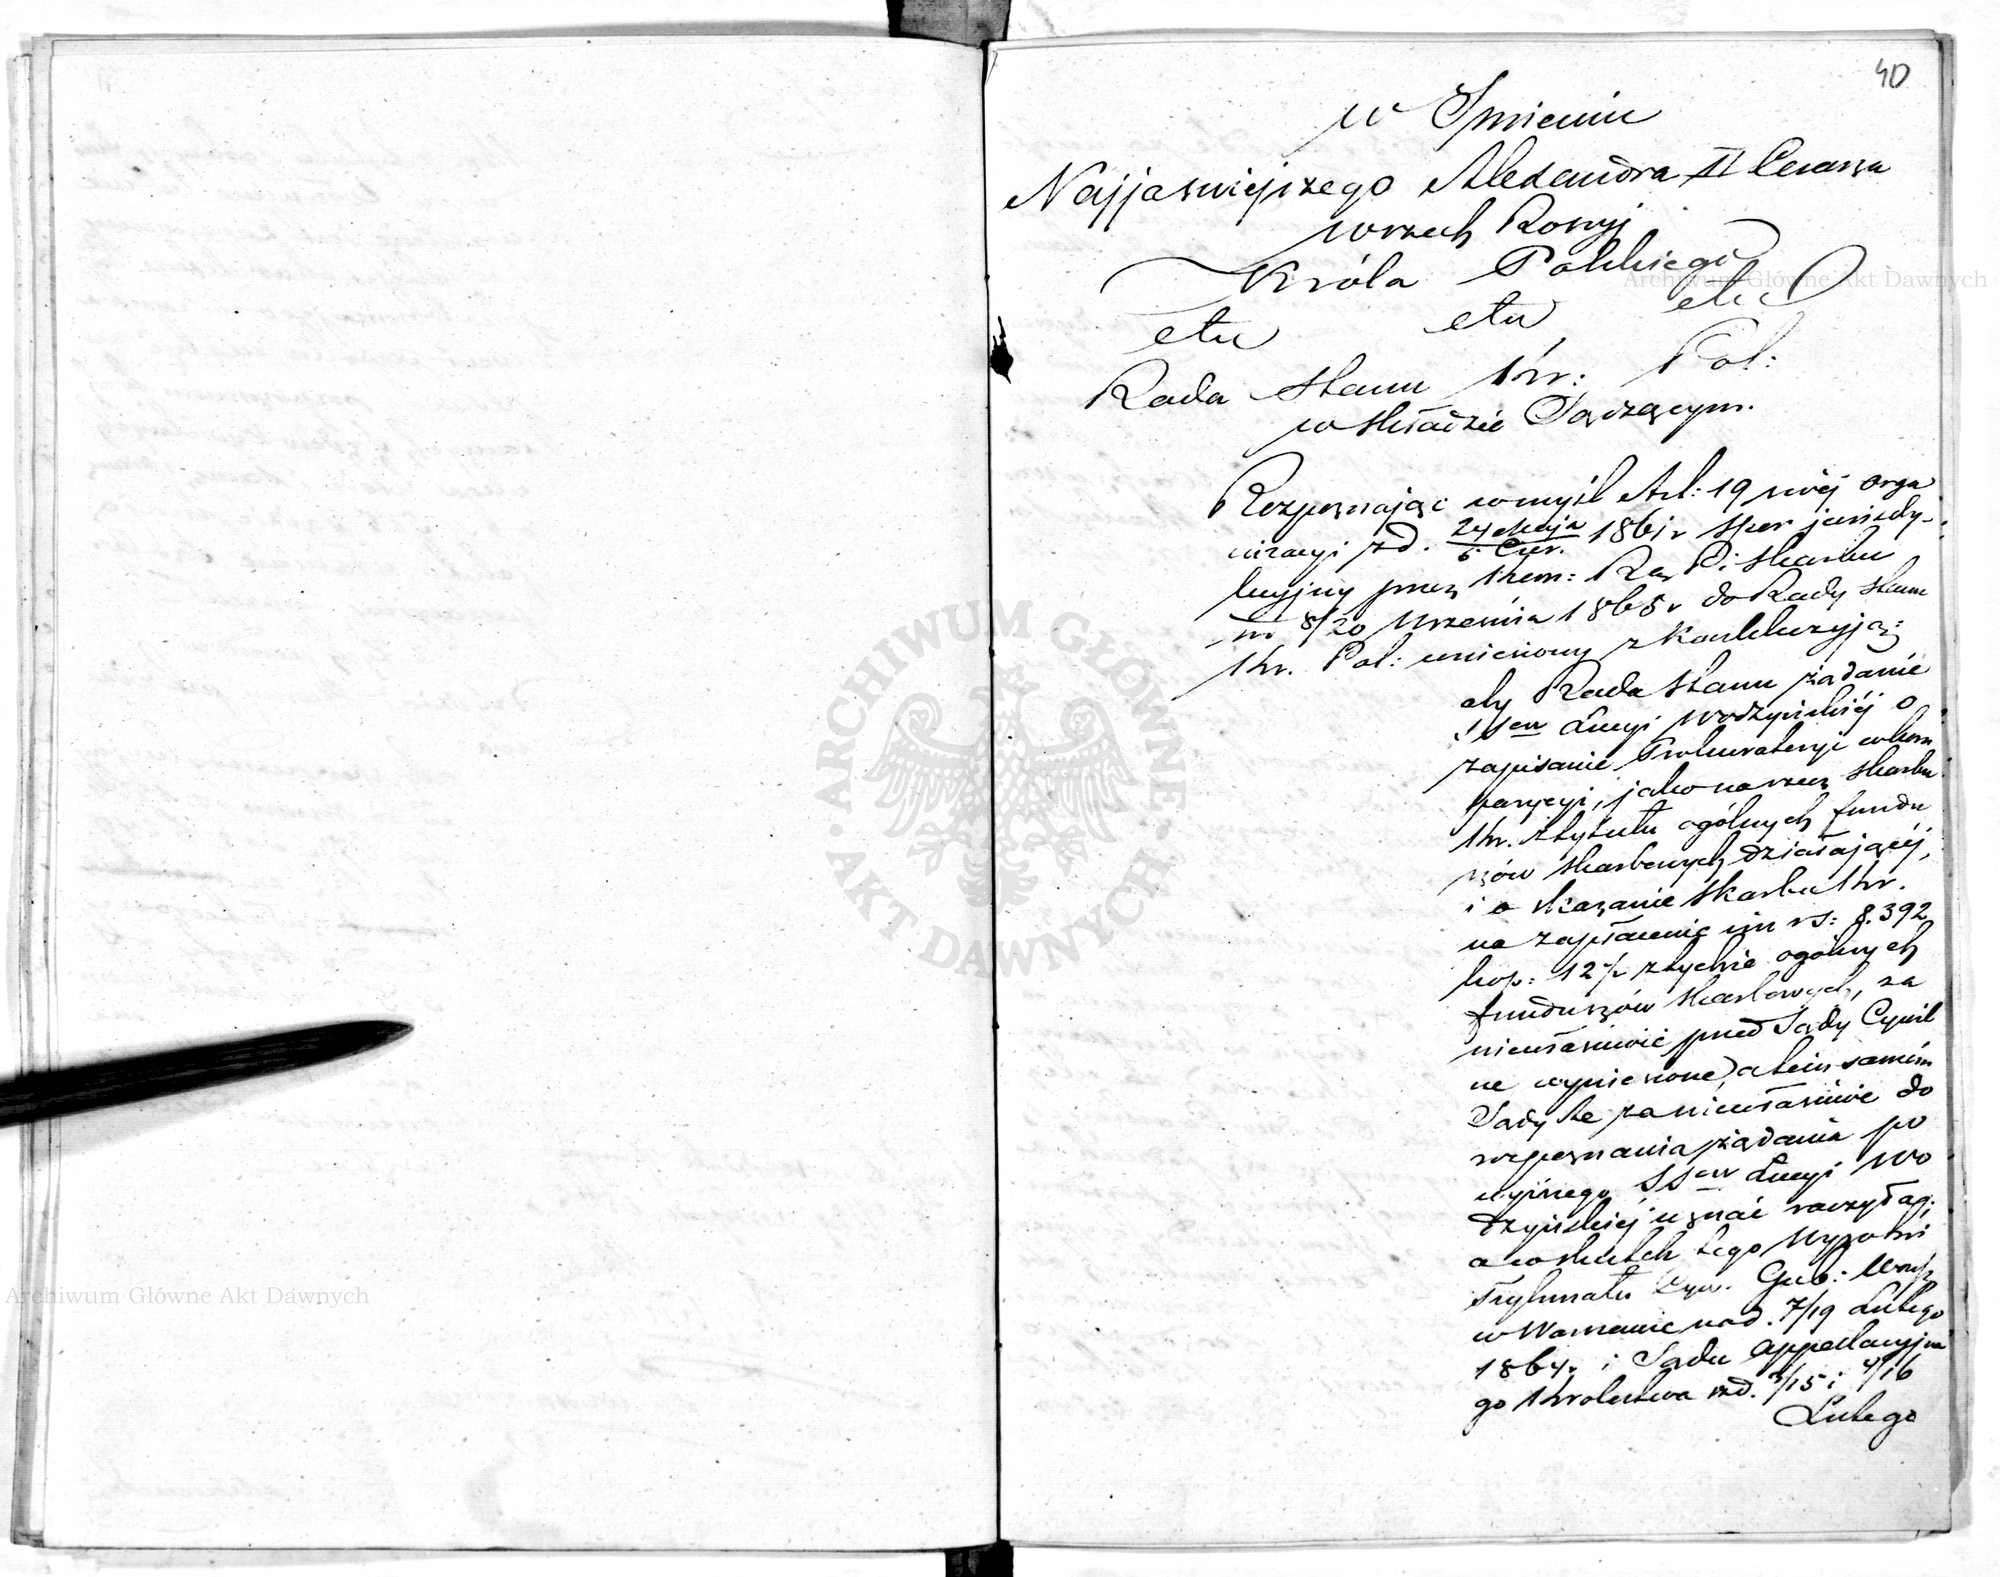 40
w Imieniu
Najjaśniejszego Alexandra II Cesarza
wszech Rossyi
Króla Polskiego
etc etc etc
Rada Stanu Kr: Pol:
w składzie Sądzącym.
Rozpoznając w myśl Art: 19 swéj orga
nizacyi z d. 24 Maja / 5 Czer. 1861 r spór jurisdy-
kcyjny przez Kom: Rz. P. i Skarbu
w 8/20 Września 1865 r do Rady Stanu
Kr. Pol: wniesiony z konkluzyją:
aby Rada Stanu żądanie
SSów Łucyi Wodzyńskiéj o
zapisanie Prokuratoryi w kom
parycyi, jako na rzecz Skarbu
Kr. z tytułu ogólnych fundu
szów skarbowych działającéj,
i o skazanie Skarbu Kr.
na zapłacenie im rs: 8.392
kop: 12½ z tychże ogólnych
funduszów skarbowych, za
niewłaściwie przed Sądy Cywil
ne wyniesione, a tém samém
Sądy te za niewłaściwe do
rozpoznania żądania po
wyższego SSów Łucyi Wo
dzyńskiéj uznać raczyła;
a w skutek tego Wyroki
Trybunału Cyw. Gub: Warsz
w Warszawie na d. 7/19 Lutego
1864 r. i Sądu Appellacyjne
go Królestwa z d. 3/15 i 4/16
Lutego
Archiwum Główne Akt Dawnych
Archiwum Główne Akt Dawnych
ARCHIWUM GŁÓWNE
AKT DAWNYCH